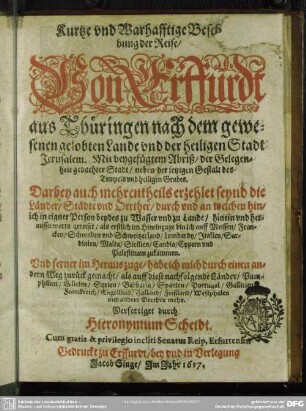 Kurtze vnd Warhafftige Besch
bung der Reise/
Von Erffurdt
aus Thüringen nach dem gewe-
senen gelobten Lande vnd der heiligen Stadt
Jerusalem. Mit beygefügtem Abriß/ der Gelegen-
heit gedachter Stadt/ neben der jetzigen Gestalt des
Tempels vnd heiligen Grabes.
Darbey auch mehrentheils erzehlet seynd die
Länder/ Städte vnd Oerther/ durch vnd an welchen hin/
ich in eigner Person beydes zu Wasser vnd zu Lande/ hinein vnd her-
ausserwerts gereiset/ als erstlich im Hineinzuge bin ich auff Meissen/ Fran-
cken/ Schwaben vnd Schweitzerland/ Lombardy/ Italien/ Sar-
dinien/ Malta/ Sicilien/ Candia/ Cypern vnd
Palestinam zukommen.
Vnd ferner im Herauszuge/ habe ich mich durch einen an-
dern Weg zurück gemacht/ als auff diese nachfolgende Länder/ Pam-
philien/ Cilicien/ Syrien/ Barbaria/ Spanien/ Portugal/ Gallicien/
Franckreich/ Engelland/ Holland/ Frießland/ Westphalen
vnd andere Oerther mehr.
Verfertiget durch
Hieronymum Scheidt.
Cum gratia & privilegio incliti Senatus Reip. Erfurtensis
Gedruckt zu Erffurdt/ bey vnd in Verlegung
Jacob Singe/ Im Jahr 1617.